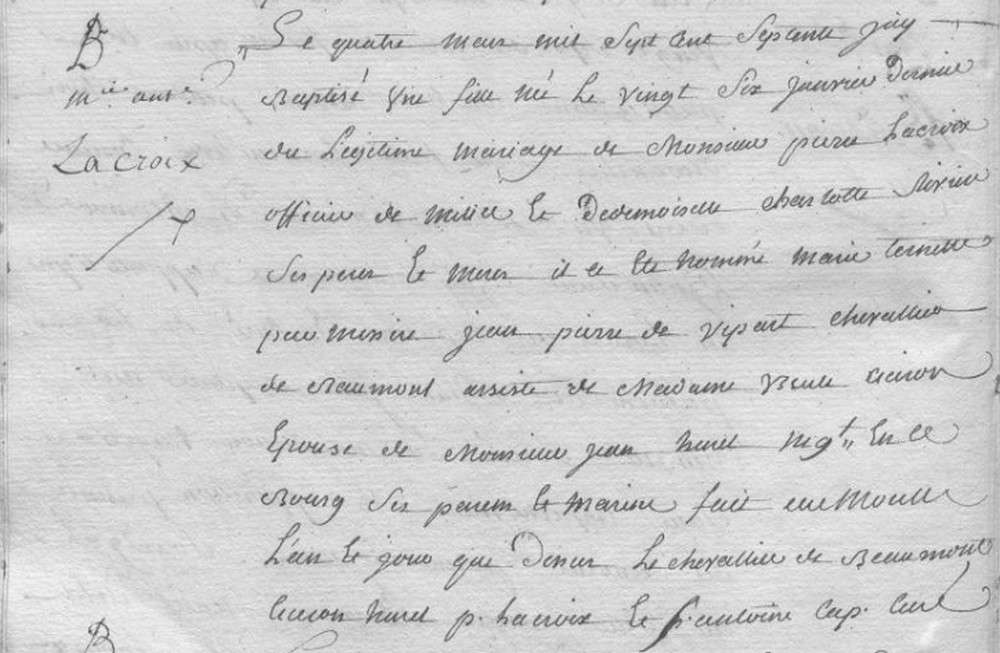 B
Le quatre mars mil sept cent septente j'ay
m.lle ant.e
Baptisé une fille né le vingt six janvier dernier
Lacroix
du légitime mariage de Monsieur pierre Lacroix
officier de milice et Dedemoiselle charlotte
ses peres et meres il a eté nommé marie
par messire jean pierre de vipart chevallier
de Beaumont assisté de Madame
Epouse de Monsieur jean hurel mgt en ce
Bourg ses parein et mareine fait au Moulle
L'an et jour que dessus Le chevallier de Beaumont
hurel p. Lacroix et f. antoine cap. curé
B